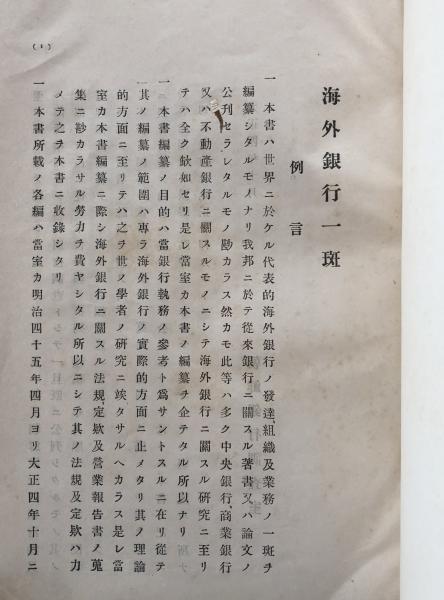 (1)
海外銀行一斑
例言
一 本書ハ世界ニ於ケル代表的海外銀行ノ發達、組織及業務ノ一斑ヲ
編纂シタルモノナリ我邦ニ於テ從來銀行ニ關スル著書又ハ論文ノ
公刊セラレタルモノ尠カラス然カモ此等ハ多ク中央銀行、商業銀行
又ハ不動產銀行ニ關スルモノニシテ海外銀行ニ關スル硏究ニ至リ
テハ全ク欿如セリ是レ當室カ本書ノ編纂ヲ企テタル所以ナリ
一 本書編纂ノ目的ハ當銀行執務ノ參考ト爲サントスルニ在リ從テ
其ノ編纂ノ範圍ハ專ラ海外銀行ノ實際的方面ニ止メタリ其ノ理論
的方面ニ至リテハ之ヲ世ノ學者ノ硏究ニ竢タサルヘカラス是レ當
室カ本書編纂ニ際シ海外銀行ニ關スル法規、定欵及營業報告書ノ蒐
集ニ尠カラサル勞力ヲ費ヤシタル所以ニシテ其ノ法規及定欵ハ力
メテ之ヲ本書ニ收錄シタリ
一 本書所載ノ各編ハ當室カ明治四十五年四月ヨリ大正四年十月ニ